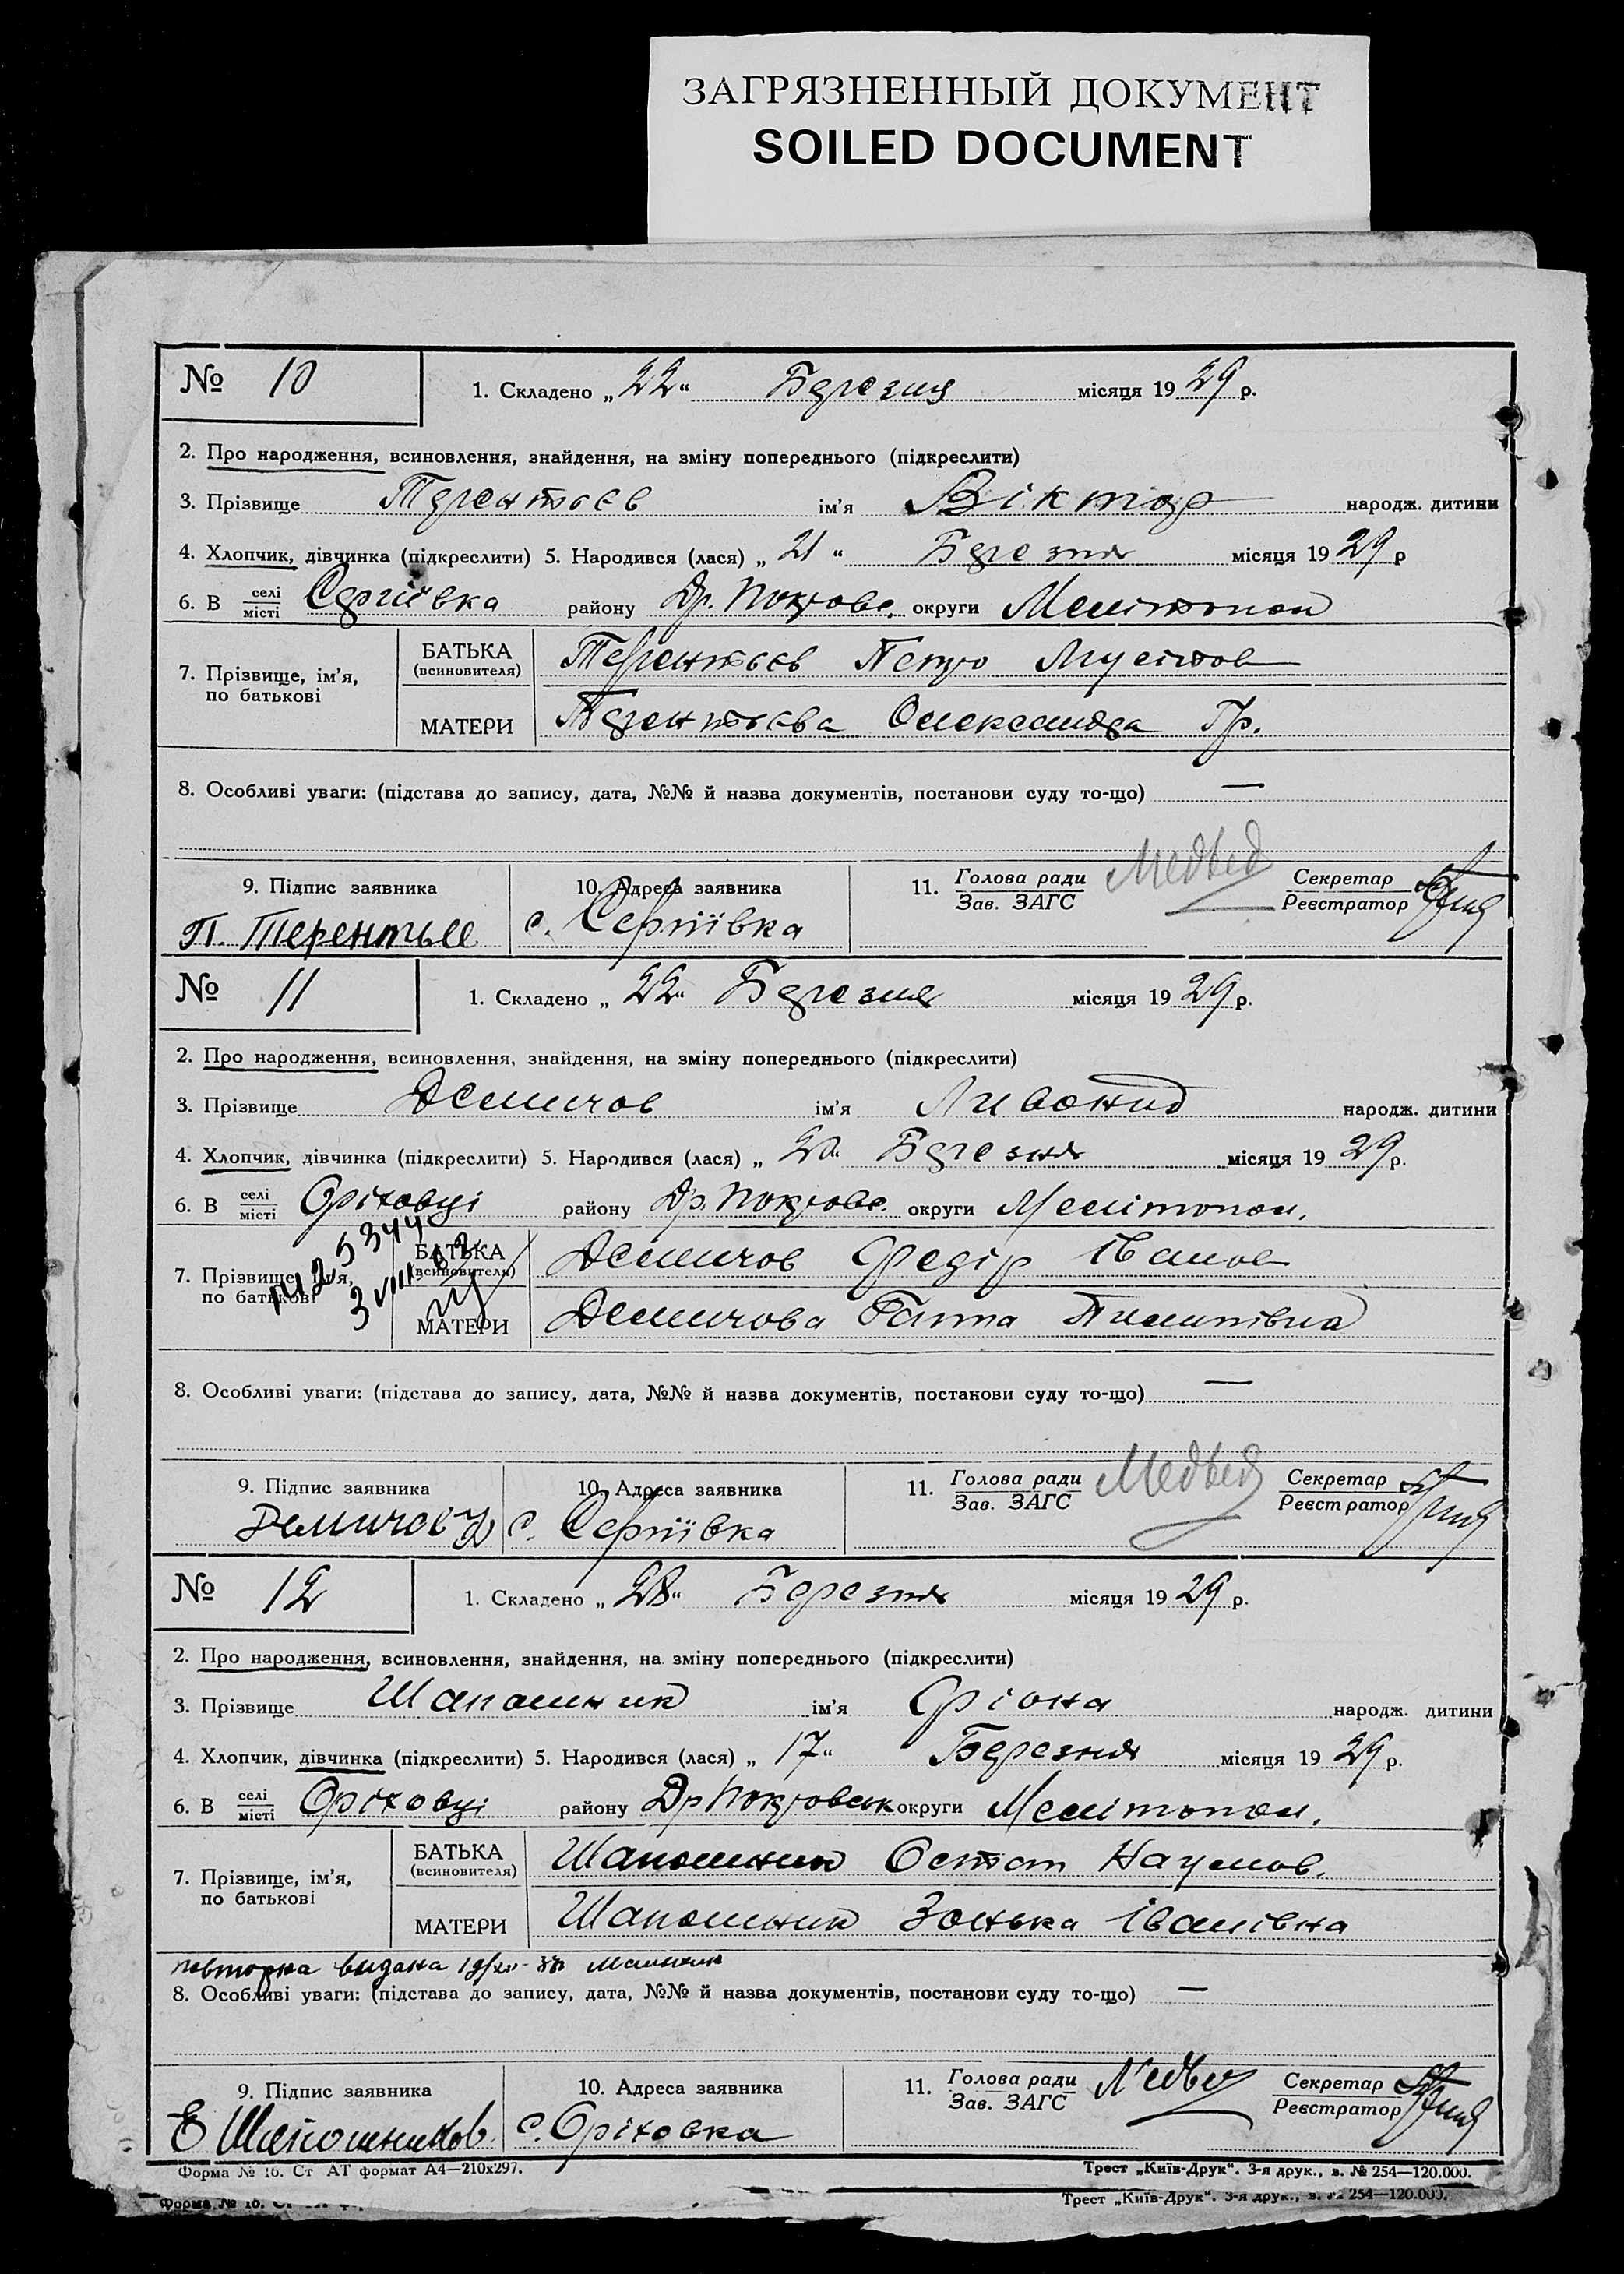 ЗАГРЯЗНЕННЫЙ ДОКУМЕНТ
SOILED DOCUMENT
№ 10 1. Складено „ 22 “ Березня місяця 19 29 р.
2. Про народження, всиновлення, знайдення, на зміну попереднього (підкреслити)
3. Прізвище Терентьєв ім'я Віктор народж. дитини
4. Хлопчик, дівчинка (підкреслити) 5. Народився (лася) „ 21 “ Березня місяця 19 29 р
6. В селі місті Сергіївка району Др. Покровс. округи Мелітопол
7. Прізвище, ім'я, по батькові
БАТЬКА (всиновителя) Терентьєв Петро
МАТЕРИ Терентьєва Олександра Гр.
8. Особливі уваги: (підстава до запису, дата, №№ й назва документів, постанови суду то-що) —
9. Підпис заявника 10. Адреса заявника 11. Голова ради Зав. ЗАГС Медвед Секретар Реєстратор
П. Терентьев с. Сергіївка
№ 11 1. Складено „ 22 “ Березня місяця 19 29 р.
2. Про народження, всиновлення, знайдення, на зміну попереднього (підкреслити)
3. Прізвище Демичов ім'я Ливонид народж. дитини
4. Хлопчик, дівчинка (підкреслити) 5. Народився (лася) „ Березня місяця 19 29 р.
6. В селі місті Оріховці району Др. Покровс. округи Мелітопол.
7. Прізвище, ім'я, по батькові
БАТЬКА (всиновителя) Демичов Федір Іванов
МАТЕРИ Демичова Ганна Пилипівна
8. Особливі уваги: (підстава до запису, дата, №№ й назва документів, постанови суду то-що) —
9. Підпис заявника 10. Адреса заявника 11. Голова ради Зав. ЗАГС Медвед Секретар Реєстратор
Демичов с. Сергіївка
№ 12 1. Складено „ 28 “ Березня місяця 19 29 р.
2. Про народження, всиновлення, знайдення, на зміну попереднього (підкреслити)
3. Прізвище Шапошник ім'я Фріона народж. дитини
4. Хлопчик, дівчинка (підкреслити) 5. Народився (лася) „ 17 “ Березня місяця 19 29 р.
6. В селі місті Оріховці району Др Покровськ округи Мелітопол.
7. Прізвище, ім'я, по батькові
БАТЬКА (всиновителя) Шапошник Остап Наумов.
МАТЕРИ Шапошник Зонька Іванівна
повторна видана
8. Особливі уваги: (підстава до запису, дата, №№ й назва документів, постанови суду то-що) —
9. Підпис заявника 10. Адреса заявника 11. Голова ради Зав. ЗАГС Медвед Секретар Реєстратор
Е Шапошников с. Оріховка
Форма № 16. Ст АТ формат А4—210x297. Трест „Київ-Друк“. 3-я друк., з. № 254—120.000.
Форма № 16. Трест „Київ-Друк“. 3-я друк., з. № 254—120.000.